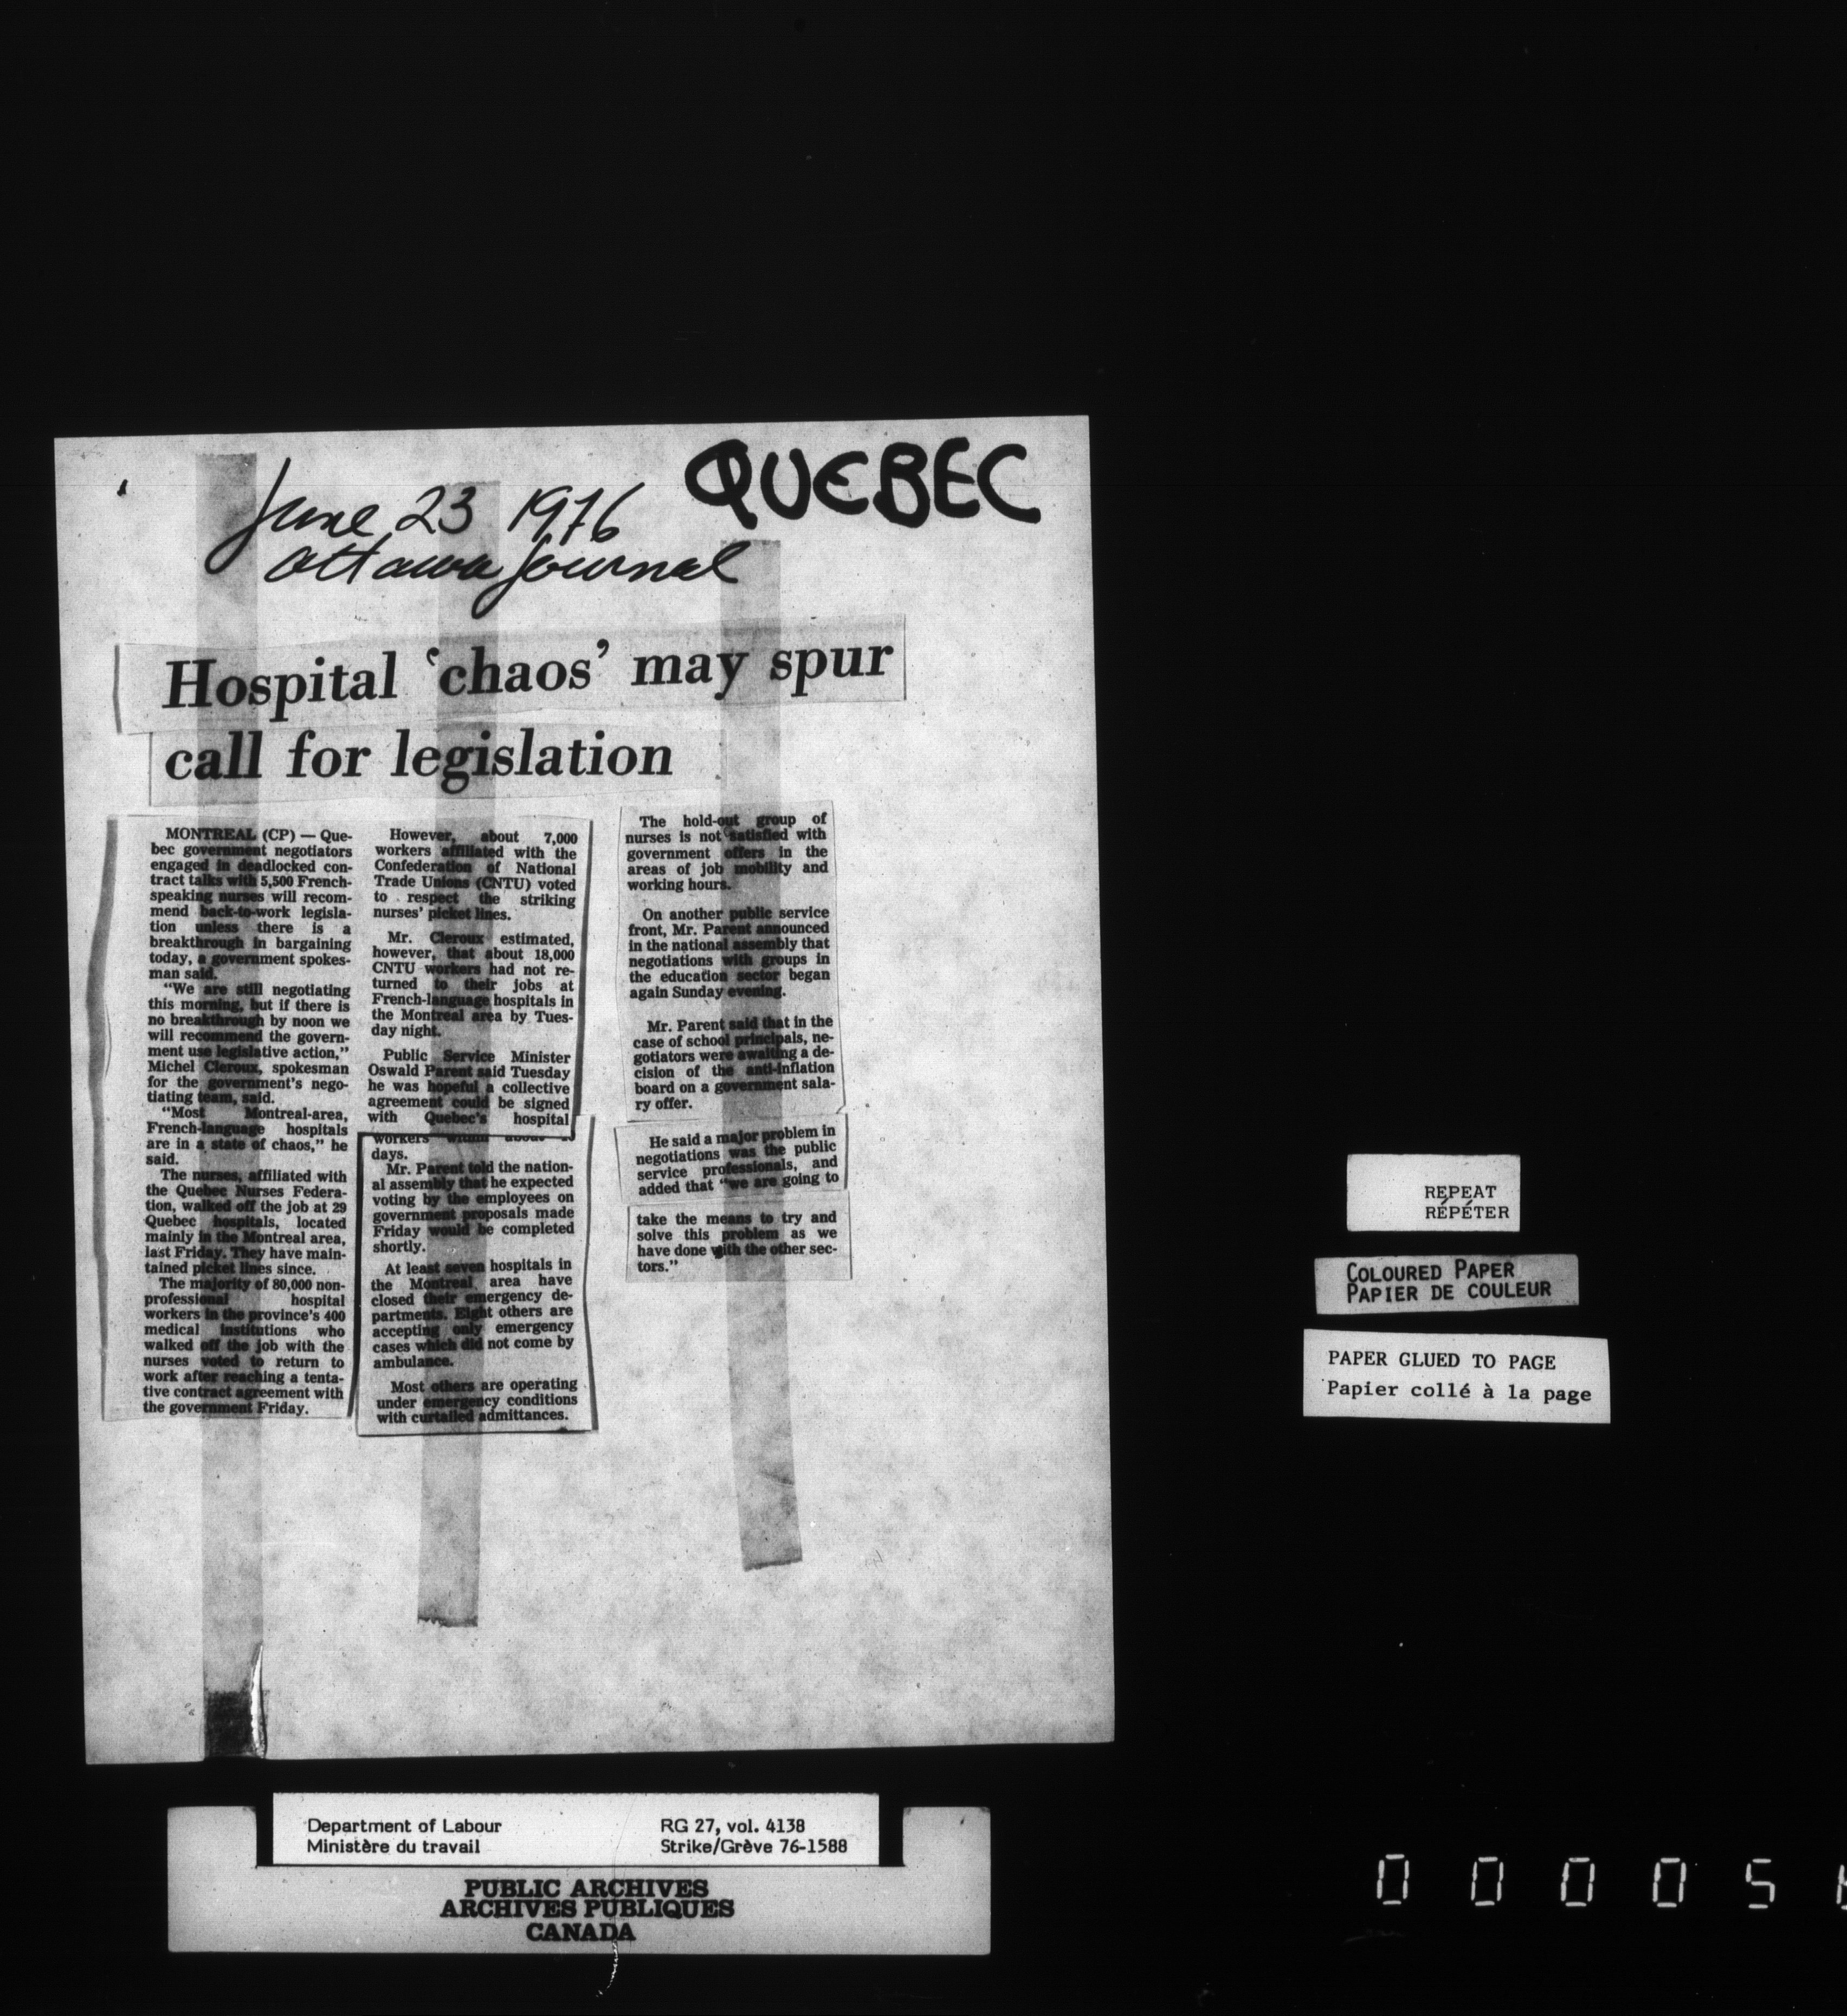 QUEBEC
June 23 1976
Ottawa Journal
Hospital 'chaos' may spur
call for legislation
MONTREAL (CP) — Que-
bec government negotiators
engaged in deadlocked con-
tract talks with 5,500 French-
speaking nurses will recom-
mend back-to-work legisla-
tion unless there is a
breakthrough in bargaining
today, a government spokes-
man said.
"We are still negotiating
this morning, but if there is
no breakthrough by noon we
will recommend the govern-
ment use legislative action,"
Michel Cleroux, spokesman
for the government's nego-
tiating team, said.
"Most Montreal-area,
French-language hospitals
are in a state of chaos," he
said.
The nurses, affiliated with
the Quebec Nurses Federa-
tion, walked off the job at 29
Quebec hospitals, located
mainly in the Montreal area,
last Friday. They have main-
tained picket lines since.
The majority of 80,000 non-
professional hospital
workers in the province's 400
medical institutions who
walked off the job with the
nurses voted to return to
work after reaching a tenta-
tive contract agreement with
the government Friday.
However, about 7,000
workers affiliated with the
Confederation of National
Trade Unions (CNTU) voted
to respect the striking
nurses' picket lines.
Mr. Cleroux estimated,
however, that about 18,000
CNTU workers had not re-
turned to their jobs at
French-language hospitals in
the Montreal area by Tues-
day night.
Public Service Minister
Oswald Parent said Tuesday
he was hopeful a collective
agreement could be signed
with Quebec's hospital
workers within about
days.
Mr. Parent told the nation-
al assembly that he expected
voting by the employees on
government proposals made
Friday would be completed
shortly.
At least seven hospitals in
the Montreal area have
closed their emergency de-
partments. Eight others are
accepting only emergency
cases which did not come by
ambulance.
Most others are operating
under emergency conditions
with curtailed admittances.
The hold-out group of
nurses is not satisfied with
government offers in the
areas of job mobility and
working hours.
On another public service
front, Mr. Parent announced
in the national assembly that
negotiations with groups in
the education sector began
again Sunday evening.
Mr. Parent said that in the
case of school principals, ne-
gotiators were awaiting a de-
cision of the anti-inflation
board on a government sala-
ry offer.
He said a major problem in
negotiations was the public
service professionals, and
added that "we are going to
take the means to try and
solve this problem as we
have done with the other sec-
tors."
REPEAT
RÉPÉTER
COLOURED PAPER
PAPIER DE COULEUR
PAPER GLUED TO PAGE
Papier collé à la page
Department of Labour
Ministère du travail
RG 27, vol. 4138
Strike/Grève 76-1588
PUBLIC ARCHIVES
ARCHIVES PUBLIQUES
CANADA
0 0 0 0 5